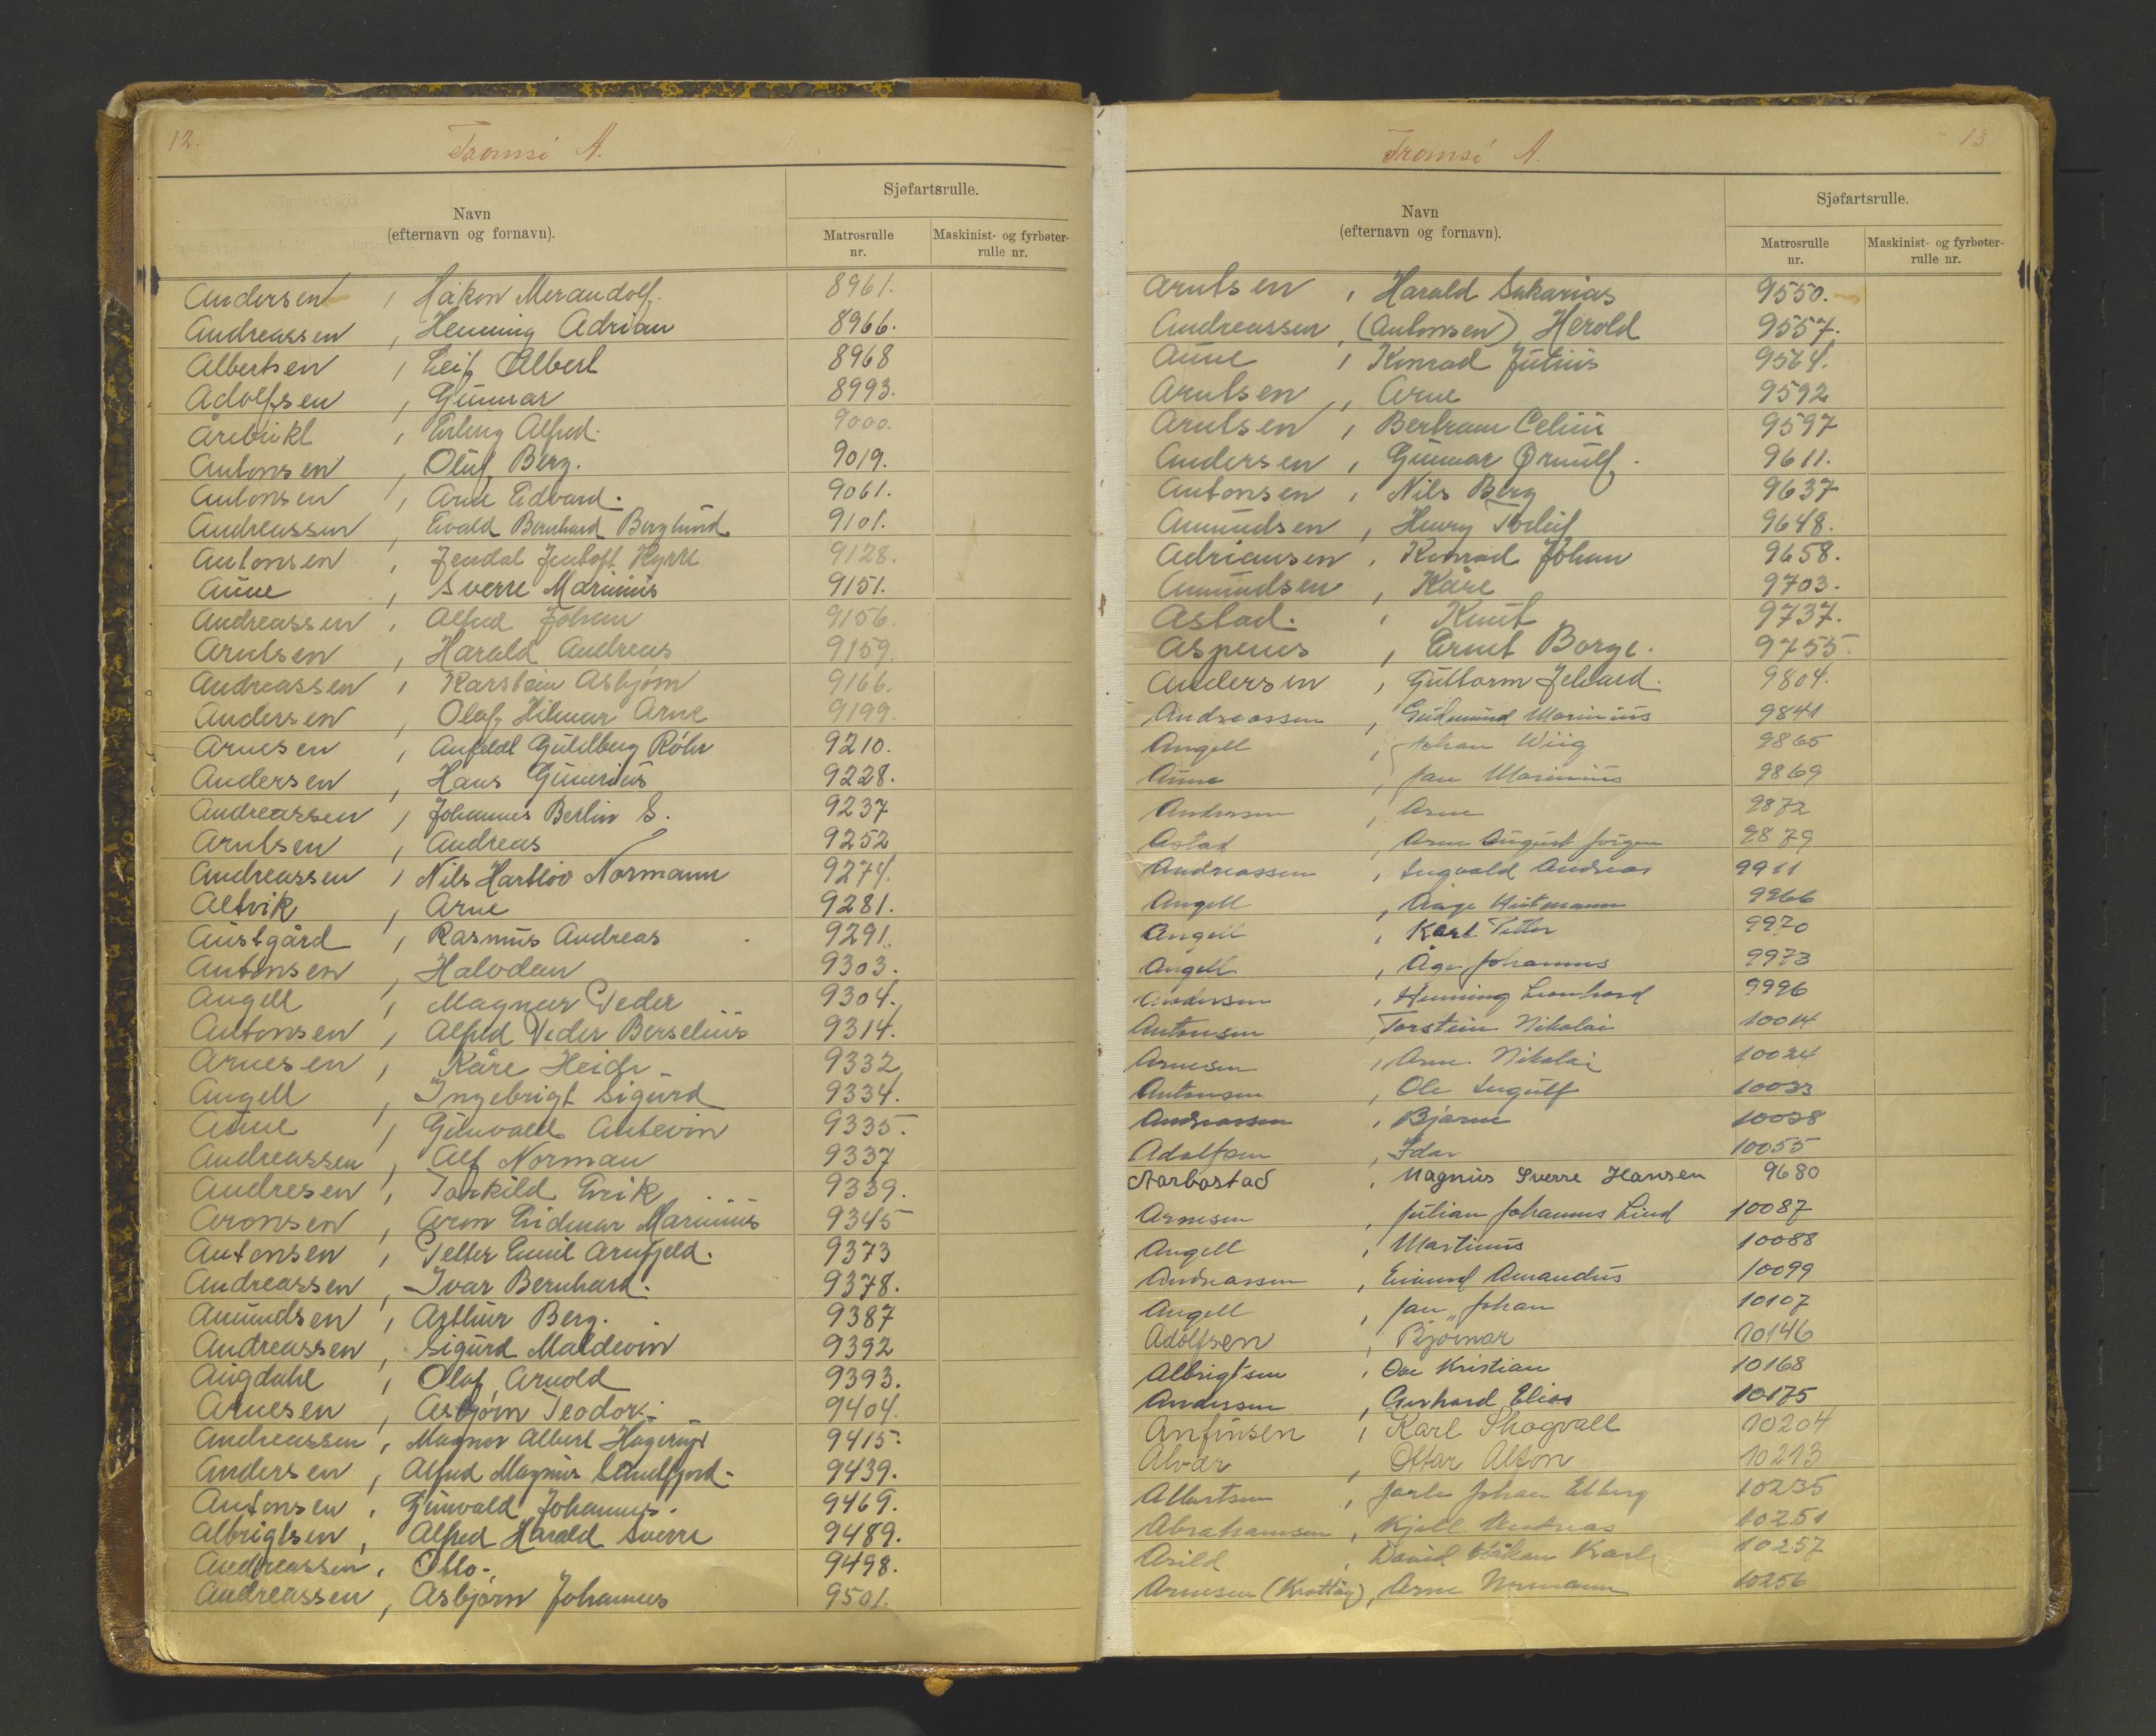 12.
Tromsö A.
Navn
(efternavn og fornavn).
Sjøfartsrulle.
Matrosrulle
nr.
Maskinist- og fyrbøter-
rulle nr.
Andersen, Håkon Merandolf. 8961.
Andreassen, Henning Adrian 8966.
Albertsen, Leif Albert 8968
Adolfsen, Gunnar 8993.
Årebukt, Erling Alfred. 9000.
Antonsen, Oluf Berg. 9019.
Antonsen, Arne Edvard. 9061.
Andreassen, Evald Bernhard Berglund 9101.
Antonsen, Jendal Jentoft Kyrre 9128.
Aune, Sverre Marinius 9151.
Andreassen, Alfred Johan 9156.
Arntsen, Harald Andreas 9159.
Andreassen, Karstein Asbjørn 9166.
Andersen, Olaf Hilmar Arne 9199.
Arnesen, Anfeldt Guldberg Röhr 9210.
Andersen, Hans Gunerius 9228.
Andreassen, Johannes Berlin S. 9237
Arntsen, Andreas 9252
Andreassen, Nils Hartlöv Normann 9274.
Altvik, Arne 9281.
Austgård, Rasmus Andreas 9291.
Antonsen, Halvdan 9303.
Angell, Magnar Peder 9304.
Antonsen, Alfred Peder Berselius 9314.
Arnesen, Kåre Heide 9332
Angell, Ingebrigt Sigurd 9334.
Aune, Gunvald Antevin 9335.
Andreassen, Alf Norman 9337
Andresen, Torkild Erik 9339.
Aronsen, Aron Eidmar Marinius 9345
Antonsen, Petter Emil Arnfjeld. 9373
Andreassen, Ivar Bernhard. 9378.
Amundsen, Arthur Berg. 9387
Andreassen, Sigurd Maldevin 9392
Augdahl, Olaf Arnold 9393.
Arnesen, Asbjørn Teodor. 9404.
Andreassen, Magnor Albert Hagerup 9415.
Andersen, Alfred Magnus Sandfjord. 9439.
Antonsen, Gunvald Johannes. 9469.
Albrigtsen, Alfred Harald Sverre 9489.
Andreassen, Otto. 9498.
Andreassen, Asbjørn Johannes 9501.
13.
Tromsö A.
Navn
(efternavn og fornavn).
Sjøfartsrulle.
Matrosrulle
nr.
Maskinist- og fyrbøter-
rulle nr.
Arntsen, Harald Sakarias 9550.
Andreassen, (Antonsen) Herold 9557.
Aune, Konrad Julius 9564.
Arntsen, Arne 9592
Arntsen, Bertram Celius 9597
Andersen, Gunnar Ørnulf. 9611.
Antonsen, Nils Berg 9637
Amundsen, Henry Torleif 9648.
Adriansen, Konrad Johan 9658.
Amundsen, Kåre 9703.
Astad. , Knut 9737.
Aspenes, Ernst Borge. 9755.
Andersen, Guttorm Jelvard. 9804.
Andreassen, Gudmund Marinius 9841
Angell, Johan Wiig 9865
Aune, Jan Marinius 9869
Andersen, Arne 9872
Astad, Arne August Jörgen 9879
Andreassen, Ingvald Andreas 9911
Angell, Aage 9966
Angell, Karl Petter 9970
Angell, Åge Johannes 9973
Andersen, Henning Leonhard 9996
Antonsen, Torstein Nikolai 10014
Arnesen, Arne Nikolai 10024
Antonsen, Ole Ingulf 10033
Andreassen, Bjarne 10038
Adolfsen, Idar 10055
Aarbostad, Magnus Sverre Hansen 9680
Arnesen, Julian Johannes Lind 10087
Angell, Martinus 10088
Andreassen, Amandus 10099
Angell, Jan Johan 10107
Adolfsen, Bjørnar 10146
Albrigtsen, Ove Kristian 10168
Andersen, Gerhard Elias 10175
Anfinsen, Karl Skogvall 10204
Alvær, Ottar Alfon 10213
Albertsen, Jarle Johan Elberg 10235
Abrahamsen, Kjell Andreas 10251
Arild, David Håkon Karl 10257
Arnesen, Arne Normann 10256